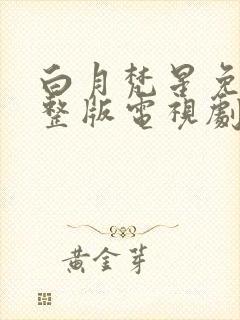 白月梵星免
整版電視劇
黃金芽